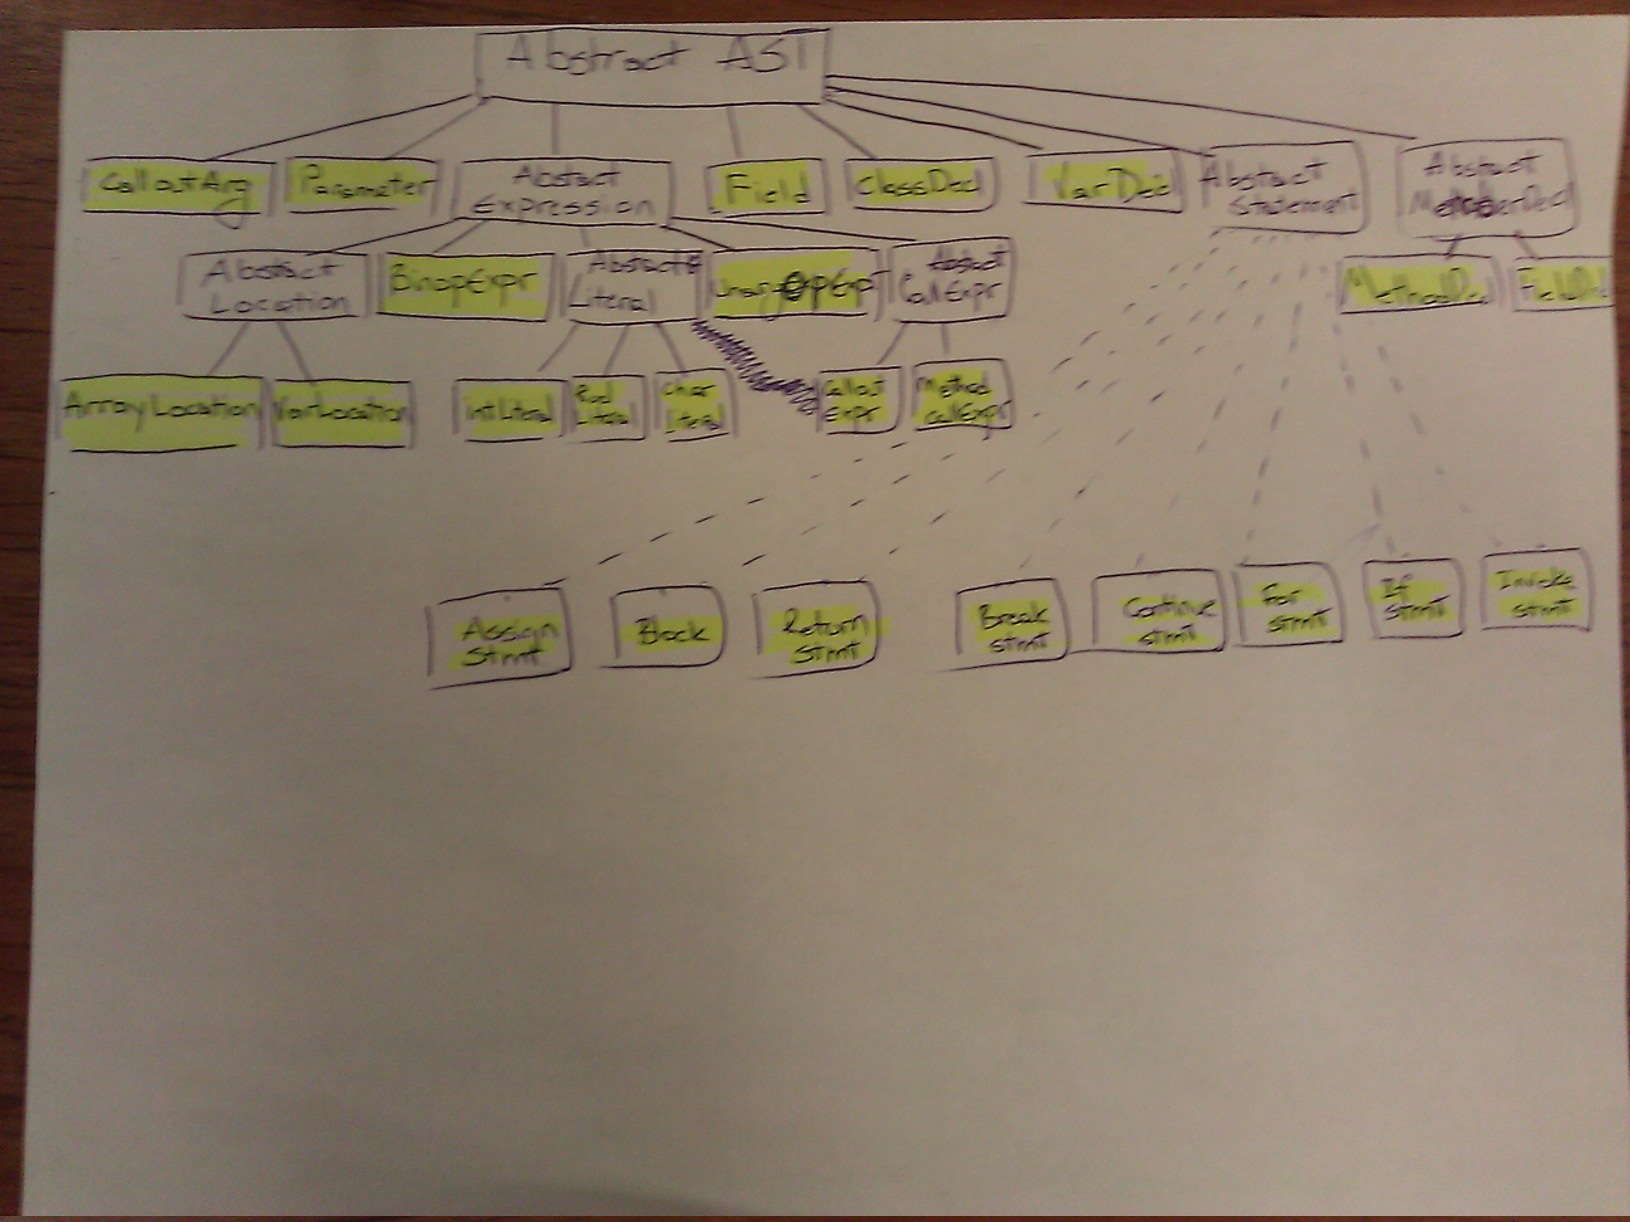 Abstract AST
CalloutArg
Parameter
Abstact
Expression
Field
ClassDecl
VarDecl
Abstract
Statement
Abstract
MemberDecl
Abstract
Location
BinopExpr
Abstract
Literal
UnaryOpExpr
Abstract
CallExpr
MethodDecl
FieldDecl
ArrayLocation
VarLocation
intLiteral
Literal
char
literal
Callout
Expr
Method
callExpr
Assign
Stmt
Block
Return
stmt
Break
stmt
Continue
stmt
For
stmt
If
stmt
Invoke
stmt